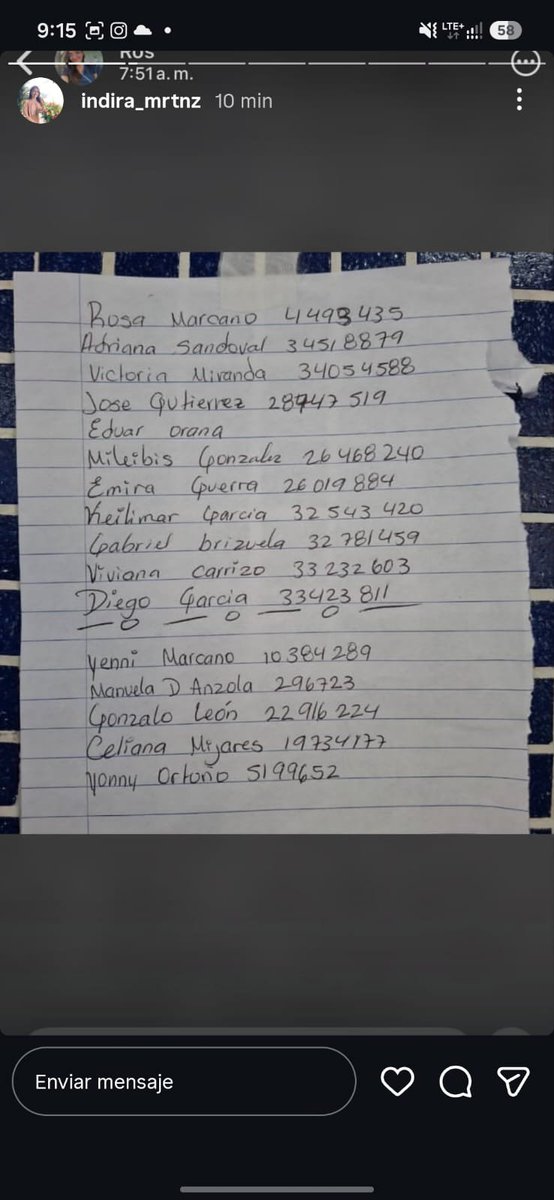 9:15
LTE+
58
Rus
7:51 a. m.
indira_mrtnz 10 min
Rosa Marcano 4493435
Adriana Sandoval 34518879
Victoria Miranda 34054588
Jose Gutierrez 28947519
Eduar Orana
Mileibis Gonzalez 26468240
Emira Guerra 26019884
Keilimar Garcia 32543420
Gabriel brizuela 32781459
Viviana Carrizo 33232603
Diego Garcia 33423811
Yenni Marcano 10384289
Manuela D Anzola 296723
Gonzalo León 22916224
Celiana Mijares 19734177
Yonny Ortuño 5199652
Enviar mensaje